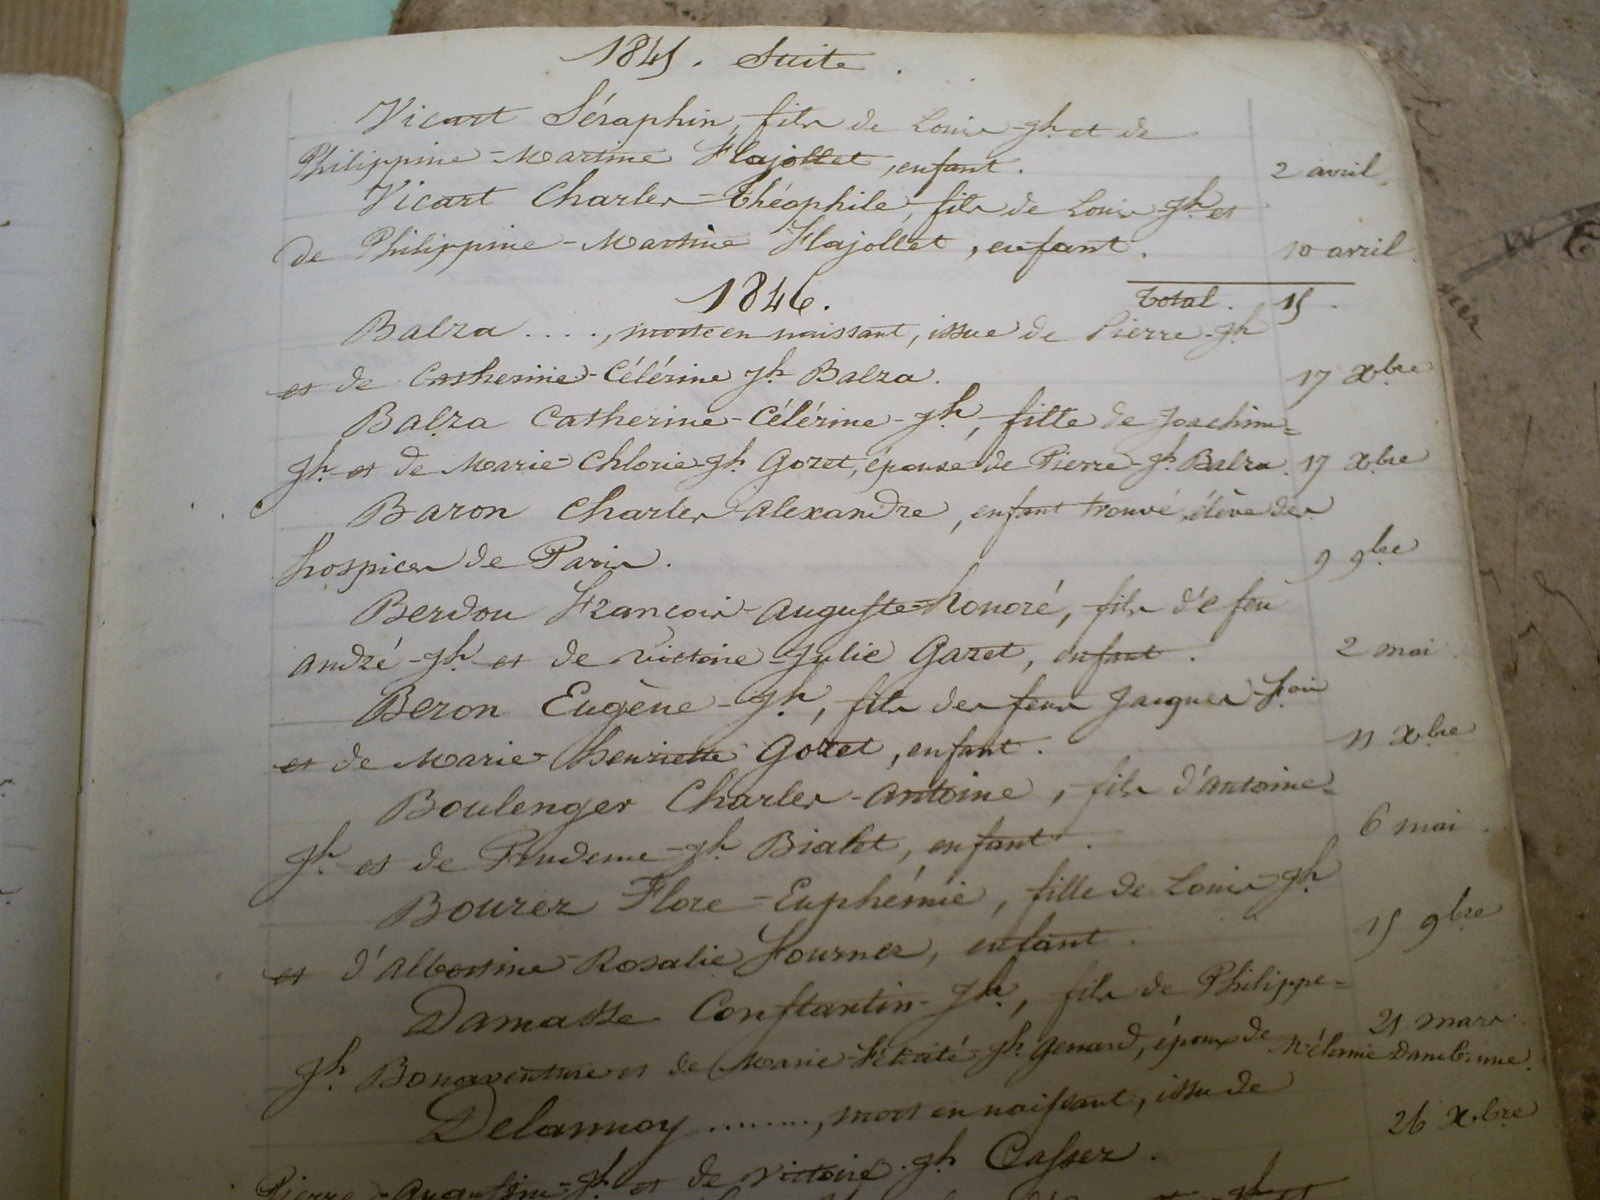 1845. Suite.
Vicart Séraphin, fils de Louis-Jh et de
Philippine-Martine Flajollet, enfant. 2 avril.
Vicart Charles-Théophile, fils de Louis Jh et
de Philippine-Martine Flajollet, enfant. 10 avril.
1846. Total. 15.
Balza ...., morte en naissant, issue de Pierre-Jh
et de Catherine-Célérine Jh Balza. 17 Xbre
Balza Catherine-Célérine-Jh, fille de Joachim=
Jh et de Marie-Chlorie Jh Gozet, épouse de Pierre-Jh Balza. 17 Xbre
Baron Charles Alexandre, enfant trouvé, élève des
hospices de Paris. 9 9bre
Berdou François-Auguste-Honoré, fils de feu
André-Jh et de Victoire-Julie Gazet, enfant. 2 mai.
Bezon Eugène-Jh, fils des feus Jacques-Fois
et de Marie-Henriette Gozet, enfant. 11 Xbre
Boulenger Charles-Antoine, fils d'Antoine=
Jh et de Jh Bialet, enfant. 6 mai.
Bourez Flore-Euphémie, fille de Louis-Jh
et d'Albertine-Rosalie Fournez, enfant. 15 9bre
Damatte Constantin-Jh, fils de Philippe=
Jh Bonaventure et de Marie-Félicité-Jh Genard, époux de 21 mars.
Mélanie Dambrune.
Delannoy ........, mort en naissant, issu de
Pierre-Augustin-Jh et de Victoire Jh Casser. 26 Xbre